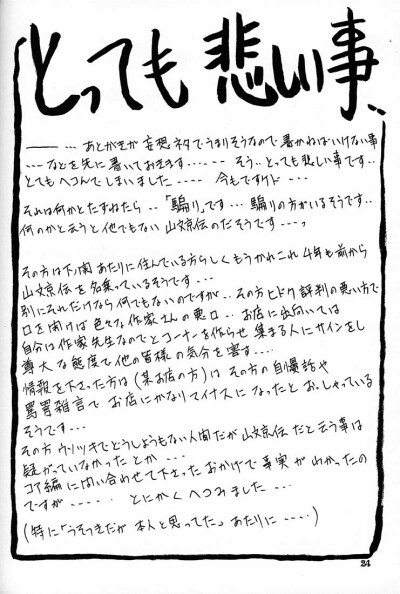 とっても悲しい事、
―― … あとがきが妄想ネタでうまりそうなので書かねばいけない事
…などを先に書いておきます…… そう‥とっても悲しい事です‥
とてもヘコんでしまいました ---- 今もですけド ---
それは何かとたずねたら‥「騙り」です… 騙りの方がいるそうです‥
何のかと云うと他でもない 山文京伝のだそうです---。
その方は下ノ関あたりに住んでいる方らしくもうかれこれ4年も前から
山文京伝を名乗っているそうです…
別にそれだけなら何でもないのですが‥その方ヒドク評判の悪い方で
口を開けば色々な作家さんの悪口‥お店に出向いては
自分は作家先生なのでとコーナーを作らせ 集まる人にサインをし
尊大な態度で他の皆様の気分を害す…
情報を下さった方は(某お店の方)は その方の自慢話や
罵詈雑言で お店にかなりマイナスになったとおっしゃっている
そうです…
その方ウソツキでどうしようもない人間だが山文京伝だと云う事は
疑がっていなかったとか…
コア編に問い合わせて下さったおかげで事実がわかったの
ですが‥‥‥ とにかくヘコみました…
(特に「うそつきだが本人と思ってた」あたりに‥‥)
24